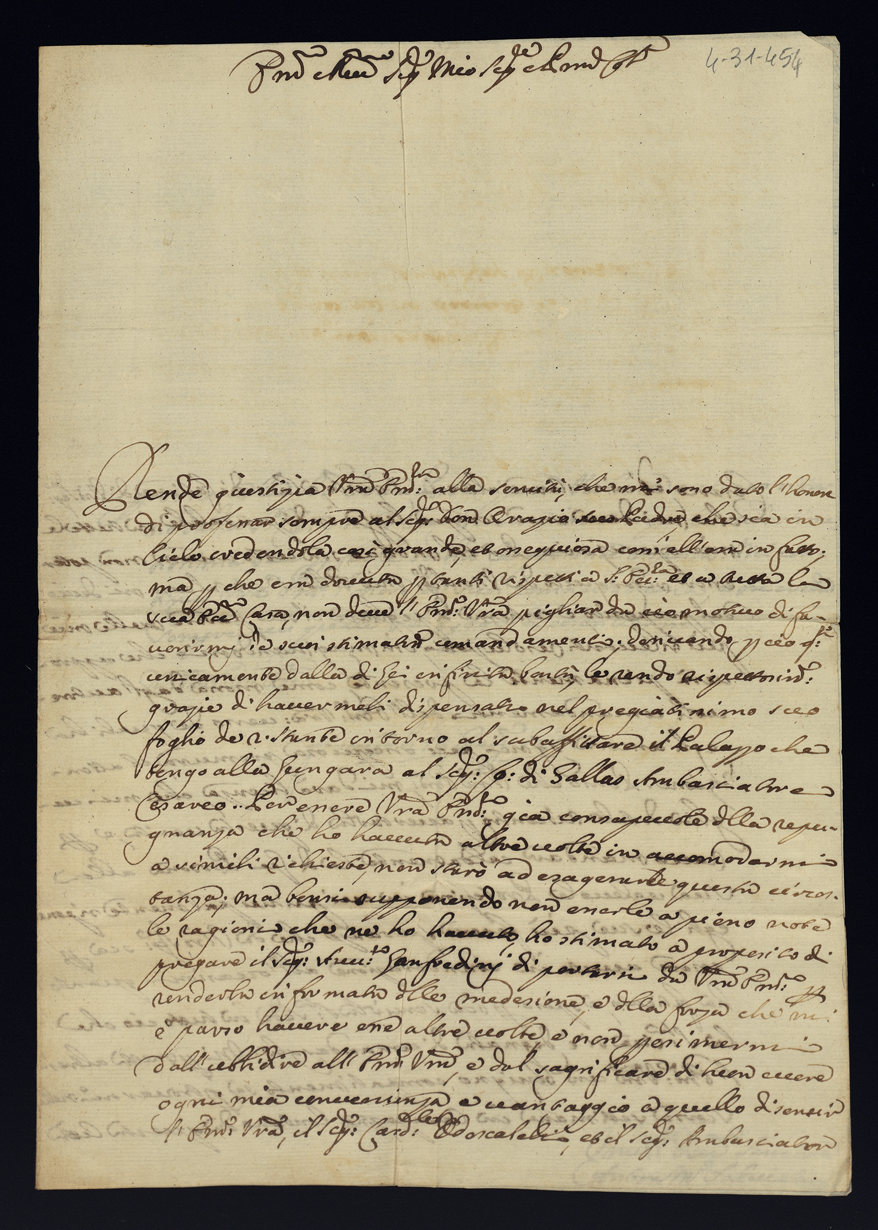 4-31-454
Rende giustizia Vrã Em̃: alla servitù, che mi sono dato l'honore
di professar sempre al Sig: Don che sia in
Cielo credendola così grande, et ossequiosa com'ell'era in fatto;
mà che era dovuta tanti rispetti a et a tutta la
sua Casa, non deve l'Em̃: Vrã pigliar da ciò motivo di fa-
vorirmi de suoi stimatm̃ comandamenti; derivando ciò
unicamente dalla di Lei infinita bontà, le rendo
grazie di havermeli dispensati nel pregiatissimo suo
foglio de 2. stante intorno al subaffittare il Palazzo che
tengo alla Lungara al Sig: di Gallas Ambasciatore
Cesareo.. Per essere Vrã Em̃: già consapevole dlla repu-
gnanza che ho havuta altre volte in accomodarmi
a simili richieste, non starò ad esagerarle questa circos-
tanza; mà bensì supponendo non esserle a pieno note
le ragioni che ne ho havuto, ho stimato à proposito di
pregare il Sig: Lanfredini di portarsi da Vrã Em̃:
renderla informata dlle medesime, e dlla forza che mi
è parso havere esse altre volte, e non esimermi
dall'ubbidire all'Em̃: Vrã, e dal sagrificare di buon cuore
ogni mia convenienza e vantaggio à quello di servir
l'Em̃: Vrã, il Sig: Card: Odescalchi, et il Sig: Ambasciatore